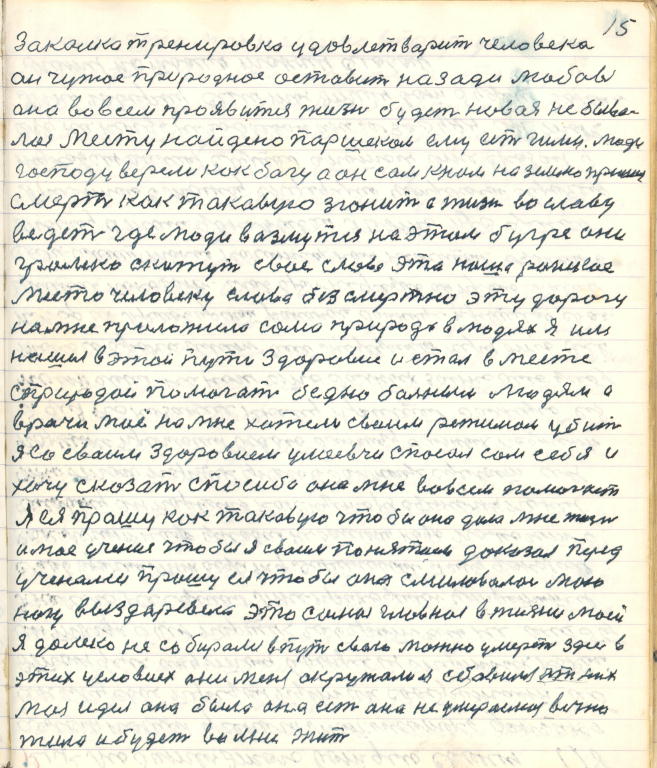 15
Закалка тренировка удовлетварит человека
он чужое природное оставит назади любов
она вовсем проявится жизн будет новая не быва-
лая Месту найдено Паршеком ему ест гимн. люди
господу верели как богу а он сам Кнам на землю пришел
смерть как таковую згонит а жизн во славу
ведет где люди возмутся на этом бугре они
громко скажут свае слово эта наша раниее
место человеку слова безсмертно эту дорогу
намне проложила сама природа в людях я им
нашел в этой пути здоровие и стал вместе
сприродой помогать бедно болным людям а
врачи моё намне хатели своим режимом убит
я со сваим здоровием умеевчи спосал сам себя и
хочу сказат спосиба она мне вовсем помогает
Я ея прашу как таковую чтобы она дала мне жизн
имое учение чтобы я сваим понятием доказал перед
учеными прашу ея чтобы она смиловалас маю
ногу выздаревела это самая главная в жизни моей
Я далеко не собирался впут сваю можно умерет здес в
этих условиех они меня окружали я сбавился от них
моя идея она была она ест она не умираемая вечно
жила и будет во мне жит